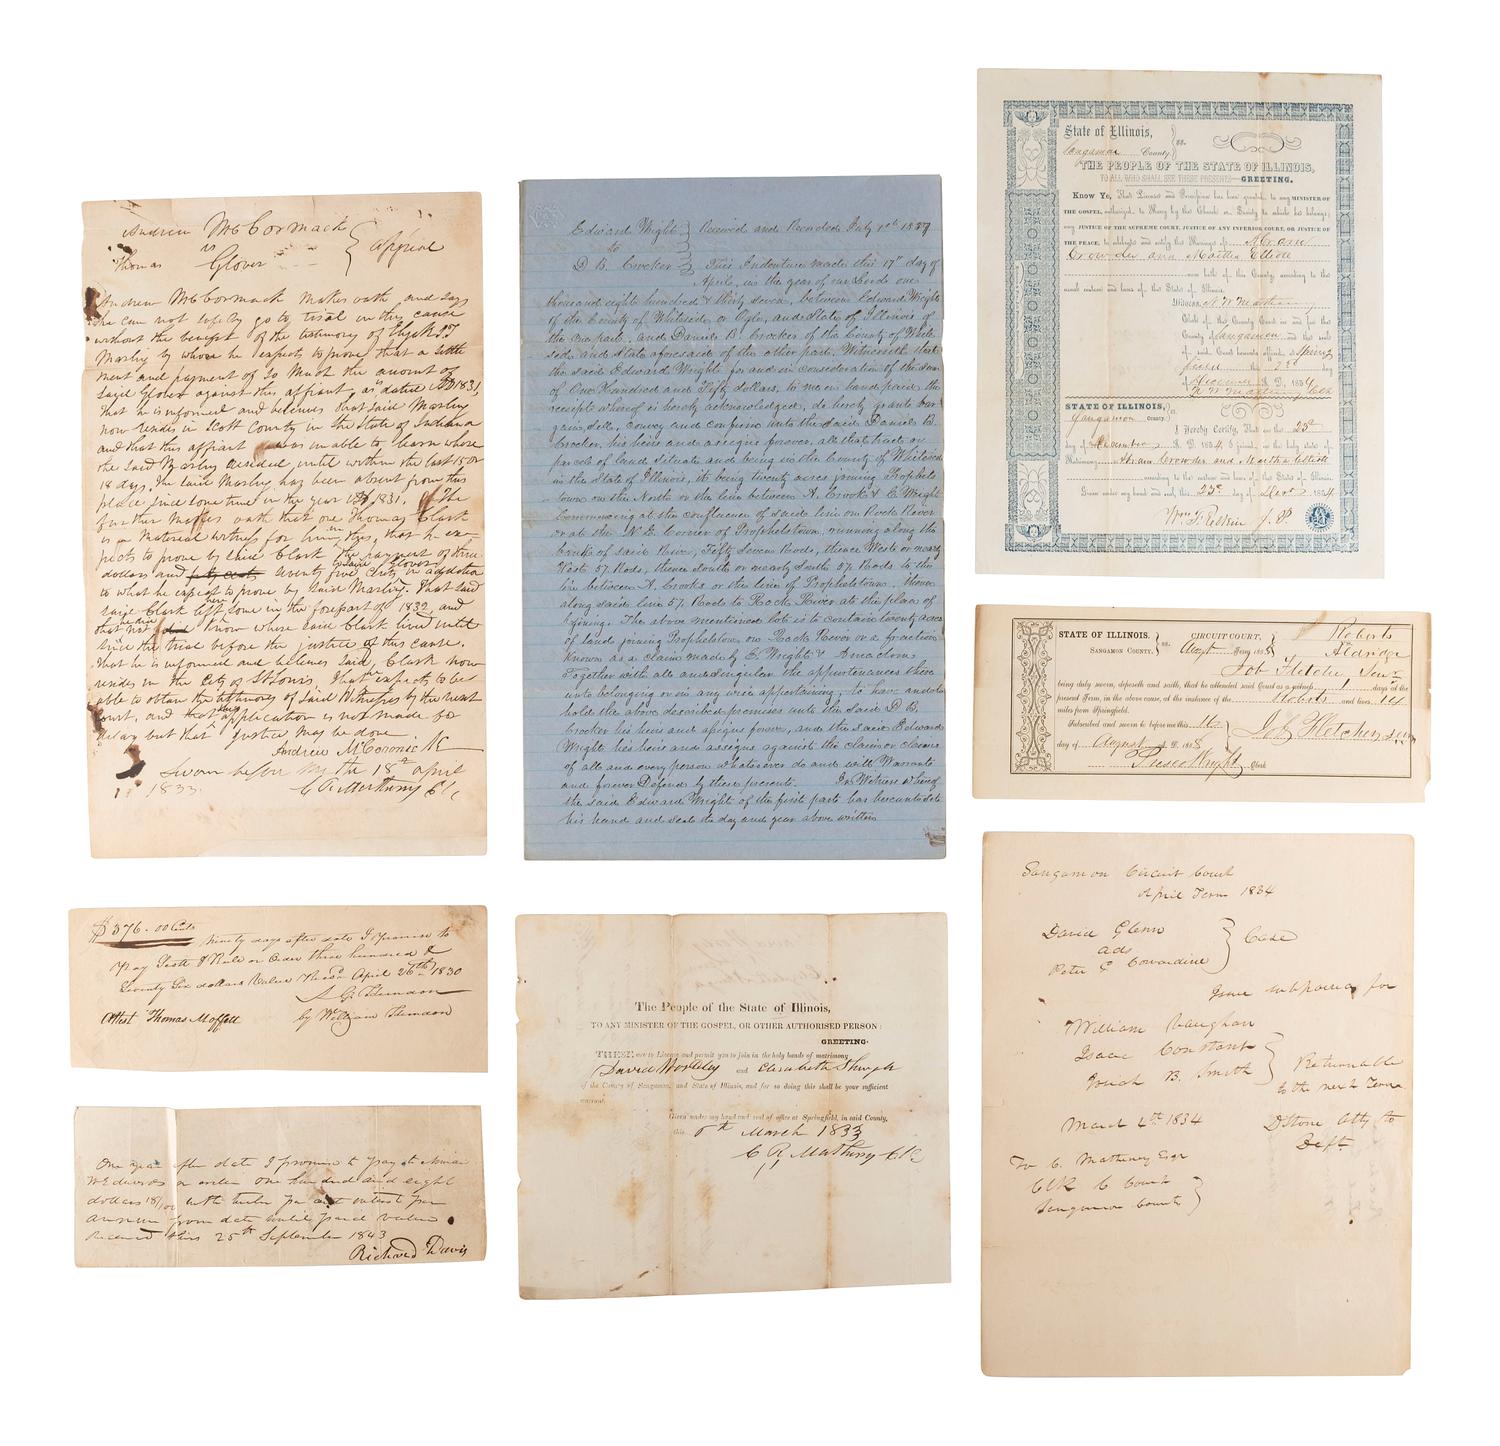 Andrew McCormack
vs
Thomas Glover } Appeal
Andrew McCormack makes oath and says
he can not safely go to trial in this cause
without the benefit of the testimony of
Marley by whom he expects to prove that a settle
ment and payment of so much the amount of
said Glover against this affiant, as dated 1831,
that he is informed and believes that said Marley
now resides in Scott County in the State of Indiana
and that this affiant was unable to learn where
the said Marley resided, until within the last 15 or
18 days. The said Marley has been absent from this
place since some time in the year 1831. The
further makes oath that one Thomas Clark
is a material witness for him, that he ex-
pects to prove by said Clark the payment of three
dollars and seventy five cents in addition
to what he expects to prove by said Marley. That said
said Clark left here some in the forepart of 1832 and
that not know where said Clark lived until
since the trial before the justice of this cause.
that he is informed and believes said Clark now
resides in the City of St Louis, That he expects to be
able to obtain the testimony of said witnesses by the next
court, and that this application is not made for
delay but that justice may be done
Andrew McCormack
Sworn before my the 18th April
1833. C R Matheny Clk
$376.00 Cents
Ninety days after date I promise to
Pay Scott & Rule or order three hundred &
Seventy Six dollars Value Rec'd April 26th 1830
A G Herndon
Attest Thomas Moffett by William Herndon
One year after date I promise to pay to Ninian
W Edwards or order one hundred and eight
dollars 18/100 with twelve per cent interest per
annum from date until paid value
Received this 25th September 1843
Richard Davis
Edward Wright } Received and Recorded July
to
D B. Crocker } This Indenture made this 17th day of
April, in the year of our Lord one
thousand eight hundred & thirty seven, between Edward Wright
of the County of Whiteside, or Ogle, and State of Illinois of
the one part, and Daniel B Crocker of the County of White
side and State aforesaid of the other part. Witnesseth that
the said Edward Wright for and in consideration of the sum
of One Hundred and Fifty dollars, to me in hand paid the
receipt whereof is hereby acknowledged, do hereby grant bar
gain, sell, convey and confirm unto the said Daniel B
Crocker, his heirs and assigns forever, all that tract or
parcel of land situate and being in the County of Whiteside
in the State of Illinois, it being twenty acres joining Prophets
town on the North or the line between A. Crook & E Wright
Commencing at the confluence of said line on Rock River
or at the N. E. Corner of Prophetstown, running along the
bank of said River, Fifty Seven Rods, thence West or nearly
West 57 Rods, thence South or nearly South 57 Rods to the
line between A. Crooks or the line of Prophetstown, thence
along said line 57 Rods to Rock River at the place of
begining. The above mentioned lot is to contain twenty acres
of land joining Prophetstown on Rock River or a fraction
known as a claim made by E. Wright &
Together with all and singular the appurtenances there
unto belonging or in any wise appertaining; to have and to
hold the above described premises unto the said D B.
Crocker his heirs and assigns forever, and the said Edward
Wright his heirs and assigns against the claim or claims
of all and every person whatsoever do and will Warrant
and forever Defend by these presents. In Witness whereof
the said Edward Wright of the first part has hereunto set
his hand and seal the day and year above written
The People of the State of Illinois,
TO ANY MINISTER OF THE GOSPEL, OR OTHER AUTHORISED PERSON:
GREETING.
THESE are to License and permit you to join in the holy bands of matrimony
David and Elizabeth
of the County of Sangamon, and State of Illinois, and for so doing this shall be your sufficient
warrant.
Given under my hand and seal of office at Springfield, in said County,
this 8th March 1833
C R Matheny Clk
State of Illinois, } ss.
Sangamon County.
THE PEOPLE OF THE STATE OF ILLINOIS,
TO ALL WHO SHALL SEE THESE PRESENTS GREETING.
Know Ye, That License and Permission has been granted to any MINISTER OF
THE GOSPEL, authorized to Marry by the Church or Society to which he belongs;
any JUSTICE OF THE SUPREME COURT, JUSTICE OF ANY INFERIOR COURT, OR JUSTICE OF
THE PEACE, to celebrate and certify the Marriage of Hiram
Crowder and Martha Elliott
now both of this County according to the
usual custom and laws of the State of Illinois.
Witness N W Matheny
Clerk of the County Court in and for the
County of Sangamon and the seal
of said Court hereunto affixed at Spring
field this day
of December A. D. 1854
N W Matheny Clerk
STATE OF ILLINOIS, } ss.
Sangamon County.
I Hereby Certify, That on the 23d
day of December A. D. 1854, I joined in the holy state of
Matrimony Hiram Crowder and Martha Elliott
according to the custom and laws of the State of Illinois.
Given under my hand and seal, this 23d day of Dec 1854
J. P.
STATE OF ILLINOIS, } ss. CIRCUIT COURT, } Roberts
SANGAMON COUNTY. August Term 185 vs. Aldridge
Job Fletcher Senr
being duly sworn, deposeth and saith, that he attended said Court as a witness 1 days at the
present Term, in the above cause, at the instance of the Roberts and lives 14
miles from Springfield.
Subscribed and sworn to before me this 16 } Job Fletcher, Senr
day of August A. D. 185
Presco Wright Clerk
Sangamon Circuit Court
April Term 1834
David Glenn
ads } Case
Peter G Cowardine
Issue subpoena for
William Vaughan
Isaac Constant } Returnable
Josiah B. Smith to the next Term
March 4th 1834 D Stone Atty for
Deft
To C. Matheny Esqr
Clk C Court
Sangamon County }